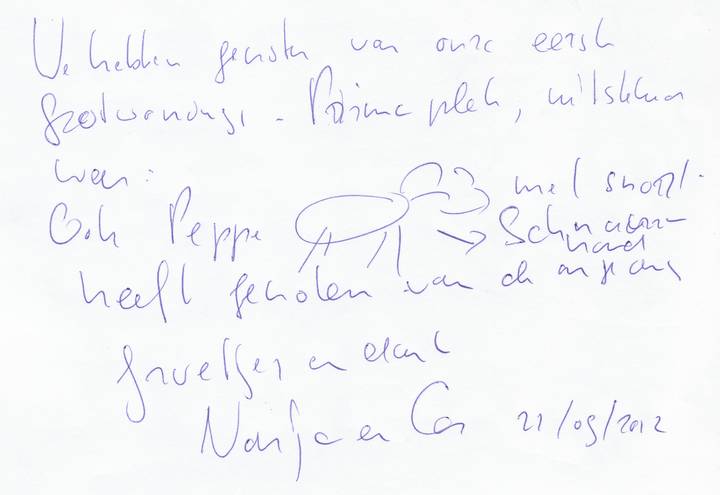 We hebben genoten van onze eerste
Prima plek, uitstekend
weer.
Ook Peppe met snorr.
Schnauzer-
hond
heeft genoten van de omgeving
Groetjes en dank
en Cor 21/09/2012